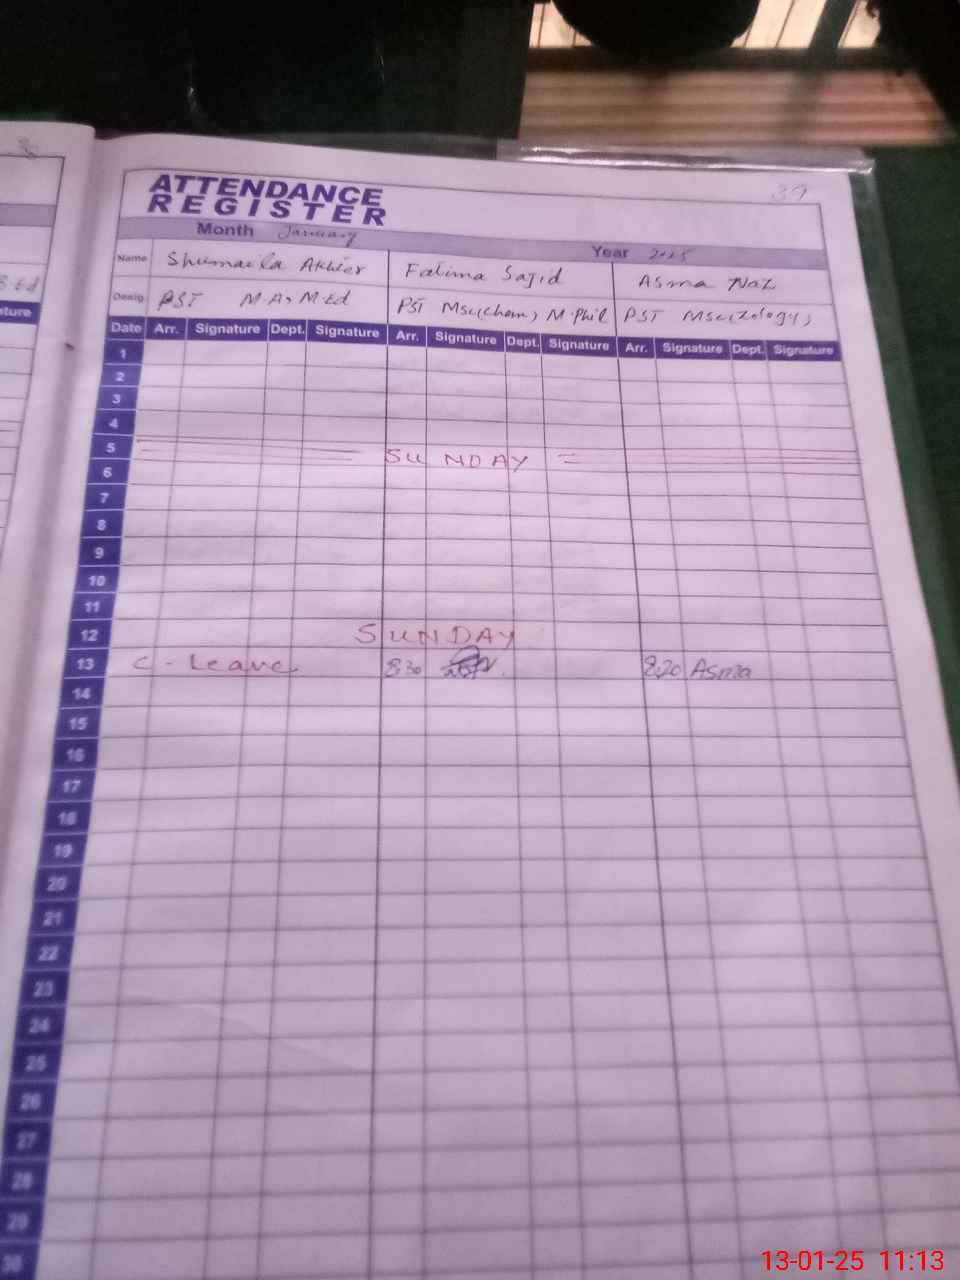 39
ATTENDANCE
REGISTER
Month January Year 2025
Name Shumaila Akhter Fatima Sajid Asma Naz
B.Ed Desig. PST M.A, M.Ed PST Msc(Chem) M.Phil PST Msc(Zology)
ture Date Arr. Signature Dept. Signature Arr. Signature Dept. Signature Arr. Signature Dept. Signature
1
2
3
4
5 SUNDAY =
6
7
8
9
10
11
12 SUNDAY
13 C-Leave 8:30 8:20 Asma
14
15
16
17
18
19
20
21
22
23
24
25
26
27
28
29
30
13-01-25 11:13